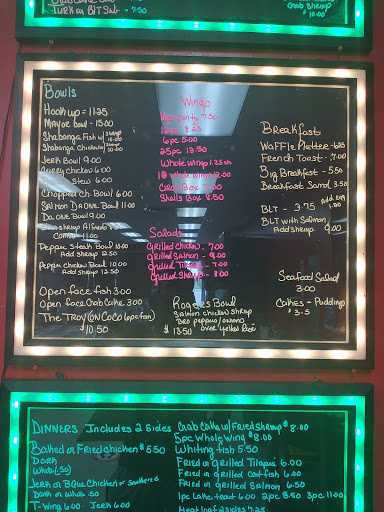 Turk on BLT Sub - 7.50
Crab Shrimp
10.00
Bowls
Hook up = 11.25
Major Bowl - 15.00
Shabanga Fish w/ Shrimp 10.00
Shabanga Chicken w/ Shrimp 10.00
Jerk Bowl 9.00
Curry Chicken 6.00
Stew 6.00
Chopped Ch. Bowl 6.00
Salmon Da One Bowl 11.00
Da One Bowl 9.00
Shrimp Alfredo
Combo 11.00
Pepper Steak Bowl 10.00
Add Shrimp 12.50
Pepper Chicken Bowl 10.00
Add Shrimp 12.50
Open face fish 3.00
Open face Crab Cake 3.00
The Troy (ON COCO
$10.50
Wings
party 7.50
8.25
6pc 5.00
25pc 13.50
Whole wing 1.25
10 Whole wings 12.00
Box 7.00
Shells Box 8.50
Salads
Grilled Chicken - 7.00
Grilled Salmon - 9.00
Grilled Tilapia - 7.00
Grilled Shrimp - 8.00
Bowl
Salmon Chicken Shrimp
peppers/onions
$13.50 over yellow Rice
Breakfast
Waffle Platter -
French Toast - 7.00
Big Breakfast - 5.50
Breakfast Sand 3.50
BLT - 3.75 add egg 1.00
BLT with Salmon
Add Shrimp 9.00
Seafood Salad
3.00
Cakes - Pudding
$3.5
DINNERS Includes 2 Sides
Baked or Fried Chicken $5.50
Dark
White (.50)
Jerk or BQue Chicken or Smothered
Dark or White .50
T-Wing 6.00 Jerk 6.00
Crab Cake w/ Fried Shrimp $8.00
5pc Whole Wing $8.00
Whiting fish 5.50
Fried or grilled Tilapia 6.00
Fried or grilled Catfish 6.00
Fried or grilled Salmon 6.50
1pc Lake trout 6.00 2pc 8.50 3pc 11.00
Meat loaf 2 sides 7.25